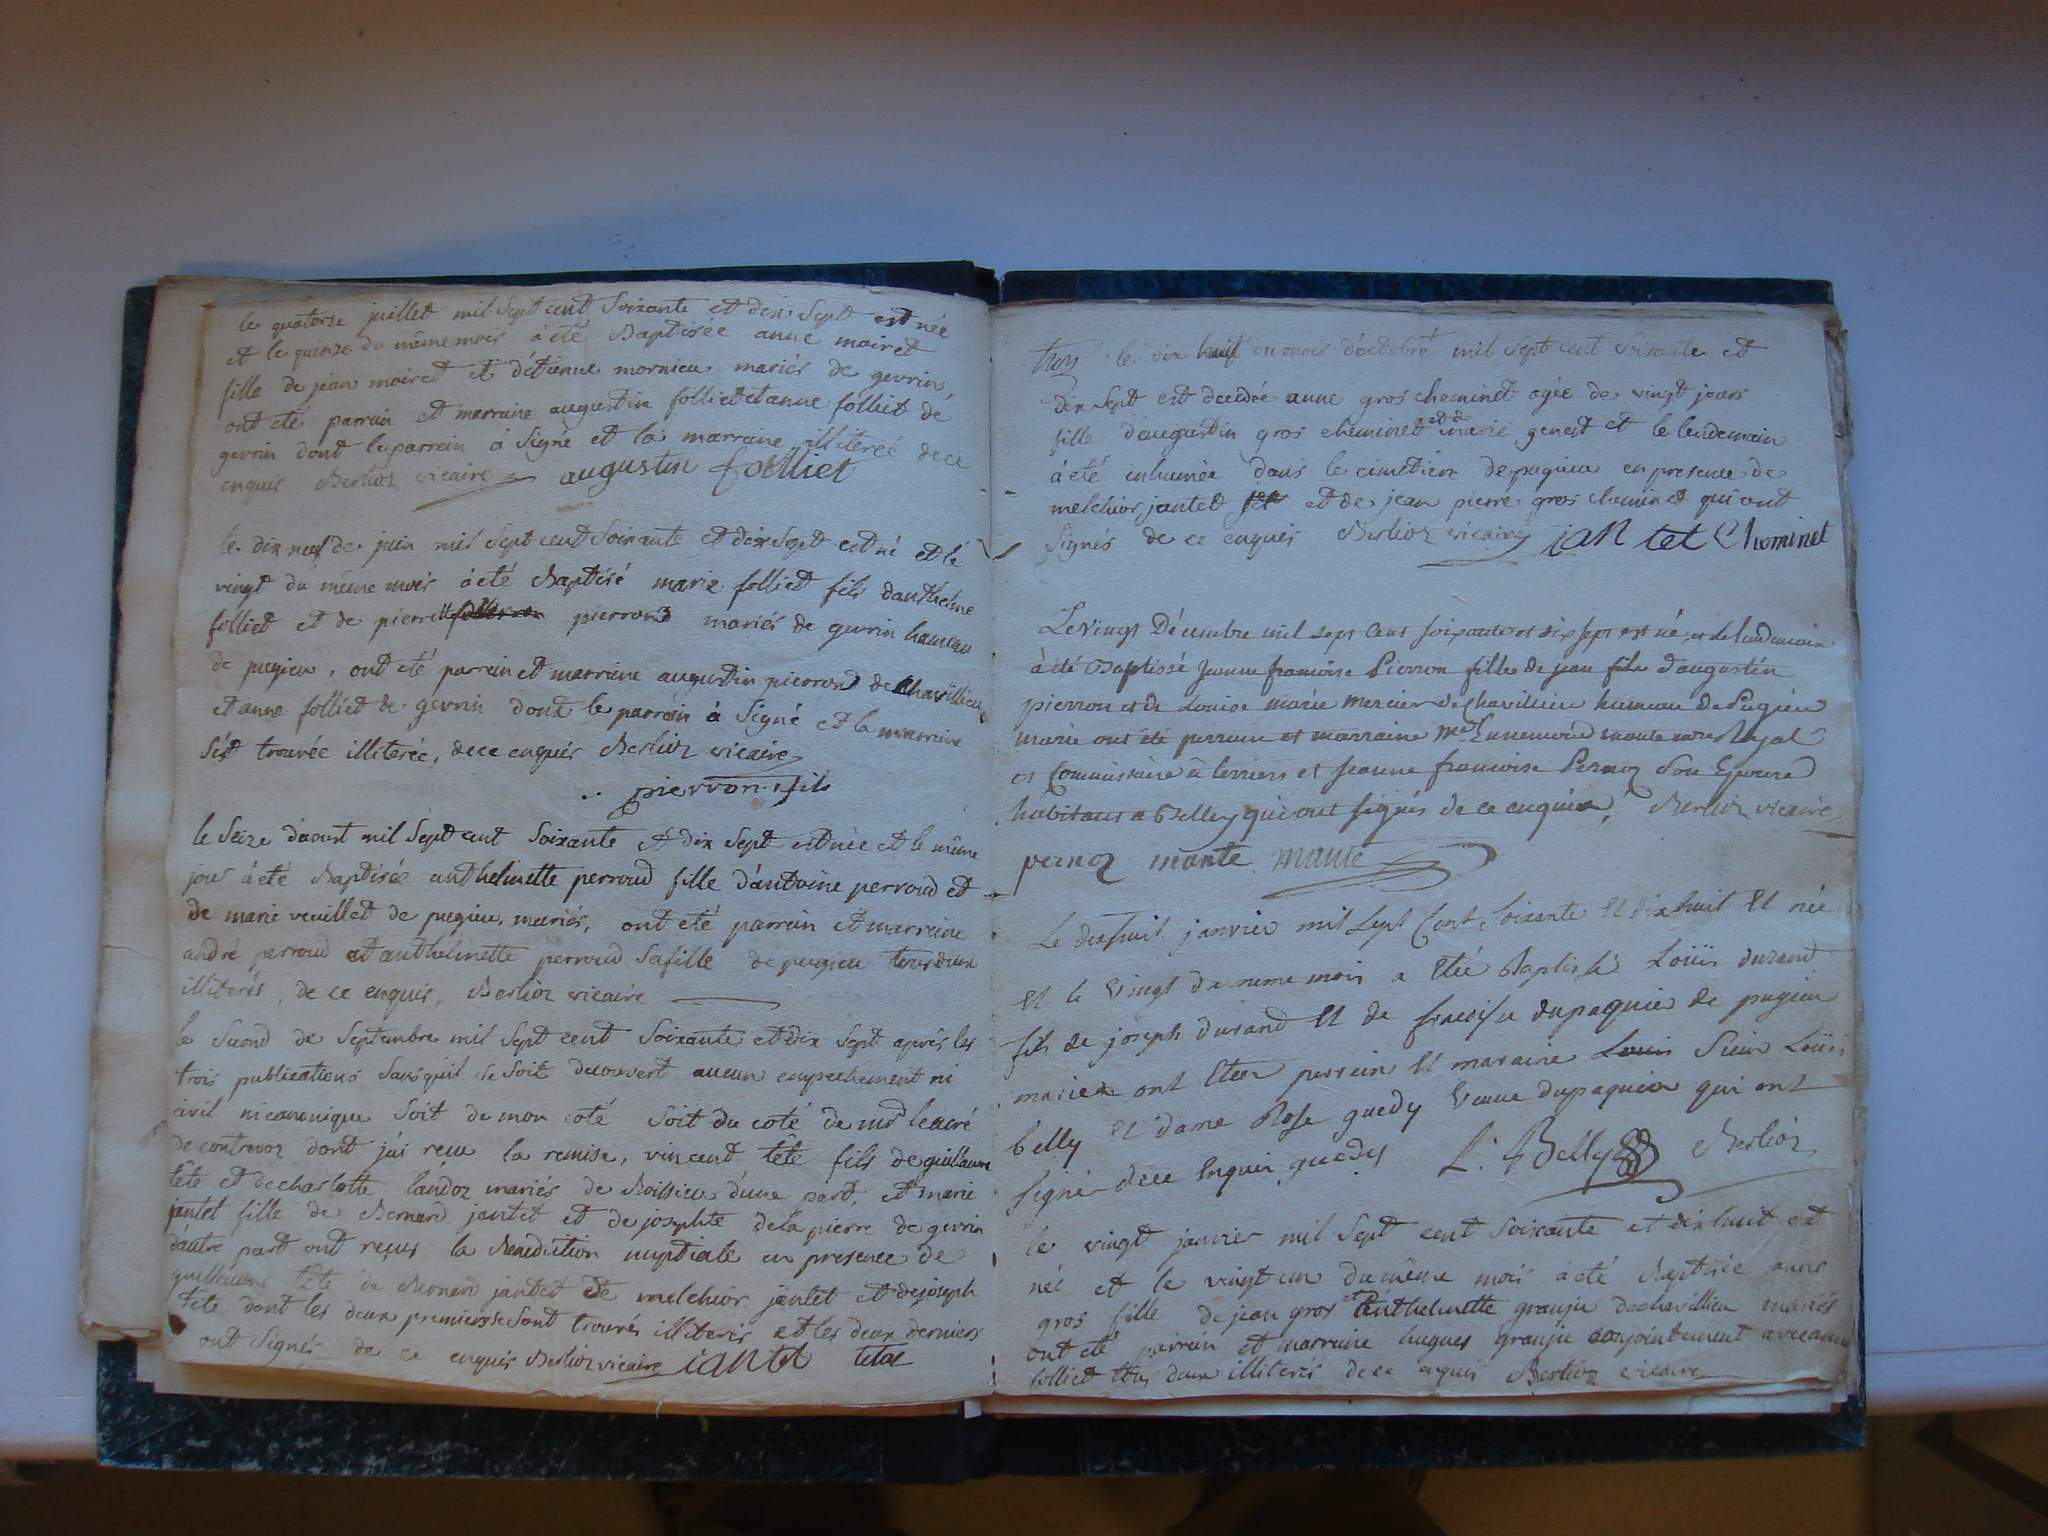 le quatorze juillet mil Sept cent Soixante et dix Sept est née
et le quinze du même mois à été Baptisée anne moiret
fille de jean moiret et d'étienne mornieu mariés de gevrin
ont été parrain et marraine augustin folliet et anne folliet de
gevrin dont le parrein à Signé et la marraine illiterée de ce
enquis Berlioz vicaire augustin folliet
le dix neuf de juin mil Sept cent Soixante et dix Sept est né et le
vingt du même mois à été Baptisé marie folliet fils danthelme
folliet et de pierrette pierrond mariés de gevrin hameau
de pugieu, ont été parrein et marreine augustin pierrond de Chavillieu
et anne folliet de gevrin dont le parrein à Signé et la marreine
s'est trouvée illiterée, de ce enquis Berlioz vicaire
pierron fils
le Seize d'aout mil Sept cent Soixante et dix Sept est née et le même
jour à été Baptisée anthelmette perroud fille d'antoine perroud et
de marie vuillet de pugieu, mariés, ont été parrein et marreine
andré perroud et anthelmette perroud Sa fille de pugieu tous deux
illiterés, de ce enquis, Berlioz vicaire
le Second de Septembre mil Sept cent Soixante et dix Sept après les
trois publications Sans qu'il se Soit decouvert aucun empechement ni
civil ni canonique Soit de mon coté Soit du coté de mr le curé
de contrevoz dont j'ai reçu la remise, vincent tête fils de guillaume
tête et de charlotte landoz mariés de Roissieu d'une part, et marie
jantet fille de Bernard jantet et de josephte de la pierre de gevrin
d'autre part ont reçus la Benediction nuptiale en presence de
guillaume tête de Bernard jantet de melchior jantet et de joseph
tête dont les deux premiers se Sont trouvés illiterés et les deux derniers
ont Signés de ce enquis Berlioz vicaire iantet tete
le dix huit du mois d'octobre mil Sept cent Soixante et
dix Sept est decedée anne gros cheminet agée de vingt jours
fille d'augustin gros cheminet et de marie genest et le lendemain
à été inhumée dans le cimetière de pugieu en presence de
melchior jantet et de jean pierre gros cheminet qui ont
Signés de ce enquis Berlioz vicaire ian tet Cheminet
Le vingt Décembre mil sept cent soixante et dix sept est né, et le lendemain
à été Baptissé Jeanne francoise Pierron fille de jean fils d'augustin
pierron et de Louise marie mercier de Chavillieu hameau de Pugieu
marie ont été perrain et marraine me mante Royal
et Commissaire à terriers et Jeanne francoise Pernoz Son Epouse
habitans a Belley qui ont signés de ce enquis, Berlioz vicaire
pernoz mante mante
Le dixhuit janvier mil Sept Cent Soixante Et dix huit Et née
Et le vingt du meme mois a Eté Baptisé Loüis durand
fils de joseph durand Et de dupaquier de pugieu
marie ont Eter perrein Et maraine Sieur Loüis
belly Et dame Rose guedy veuve dupaquier qui ont
signe de ce Enquis guedy L. Belly Berlioz
le vingt janvier mil Sept cent Soixante et dix huit est
née et le vingt un du même mois à été Baptisée anne
gros fille de jean gros et anthelmette granju de chavillieu mariés
ont été parrein et marraine hugues granju conjointement avec anne
folliet tous deux illiterés de ce enquis Berlioz vicaire